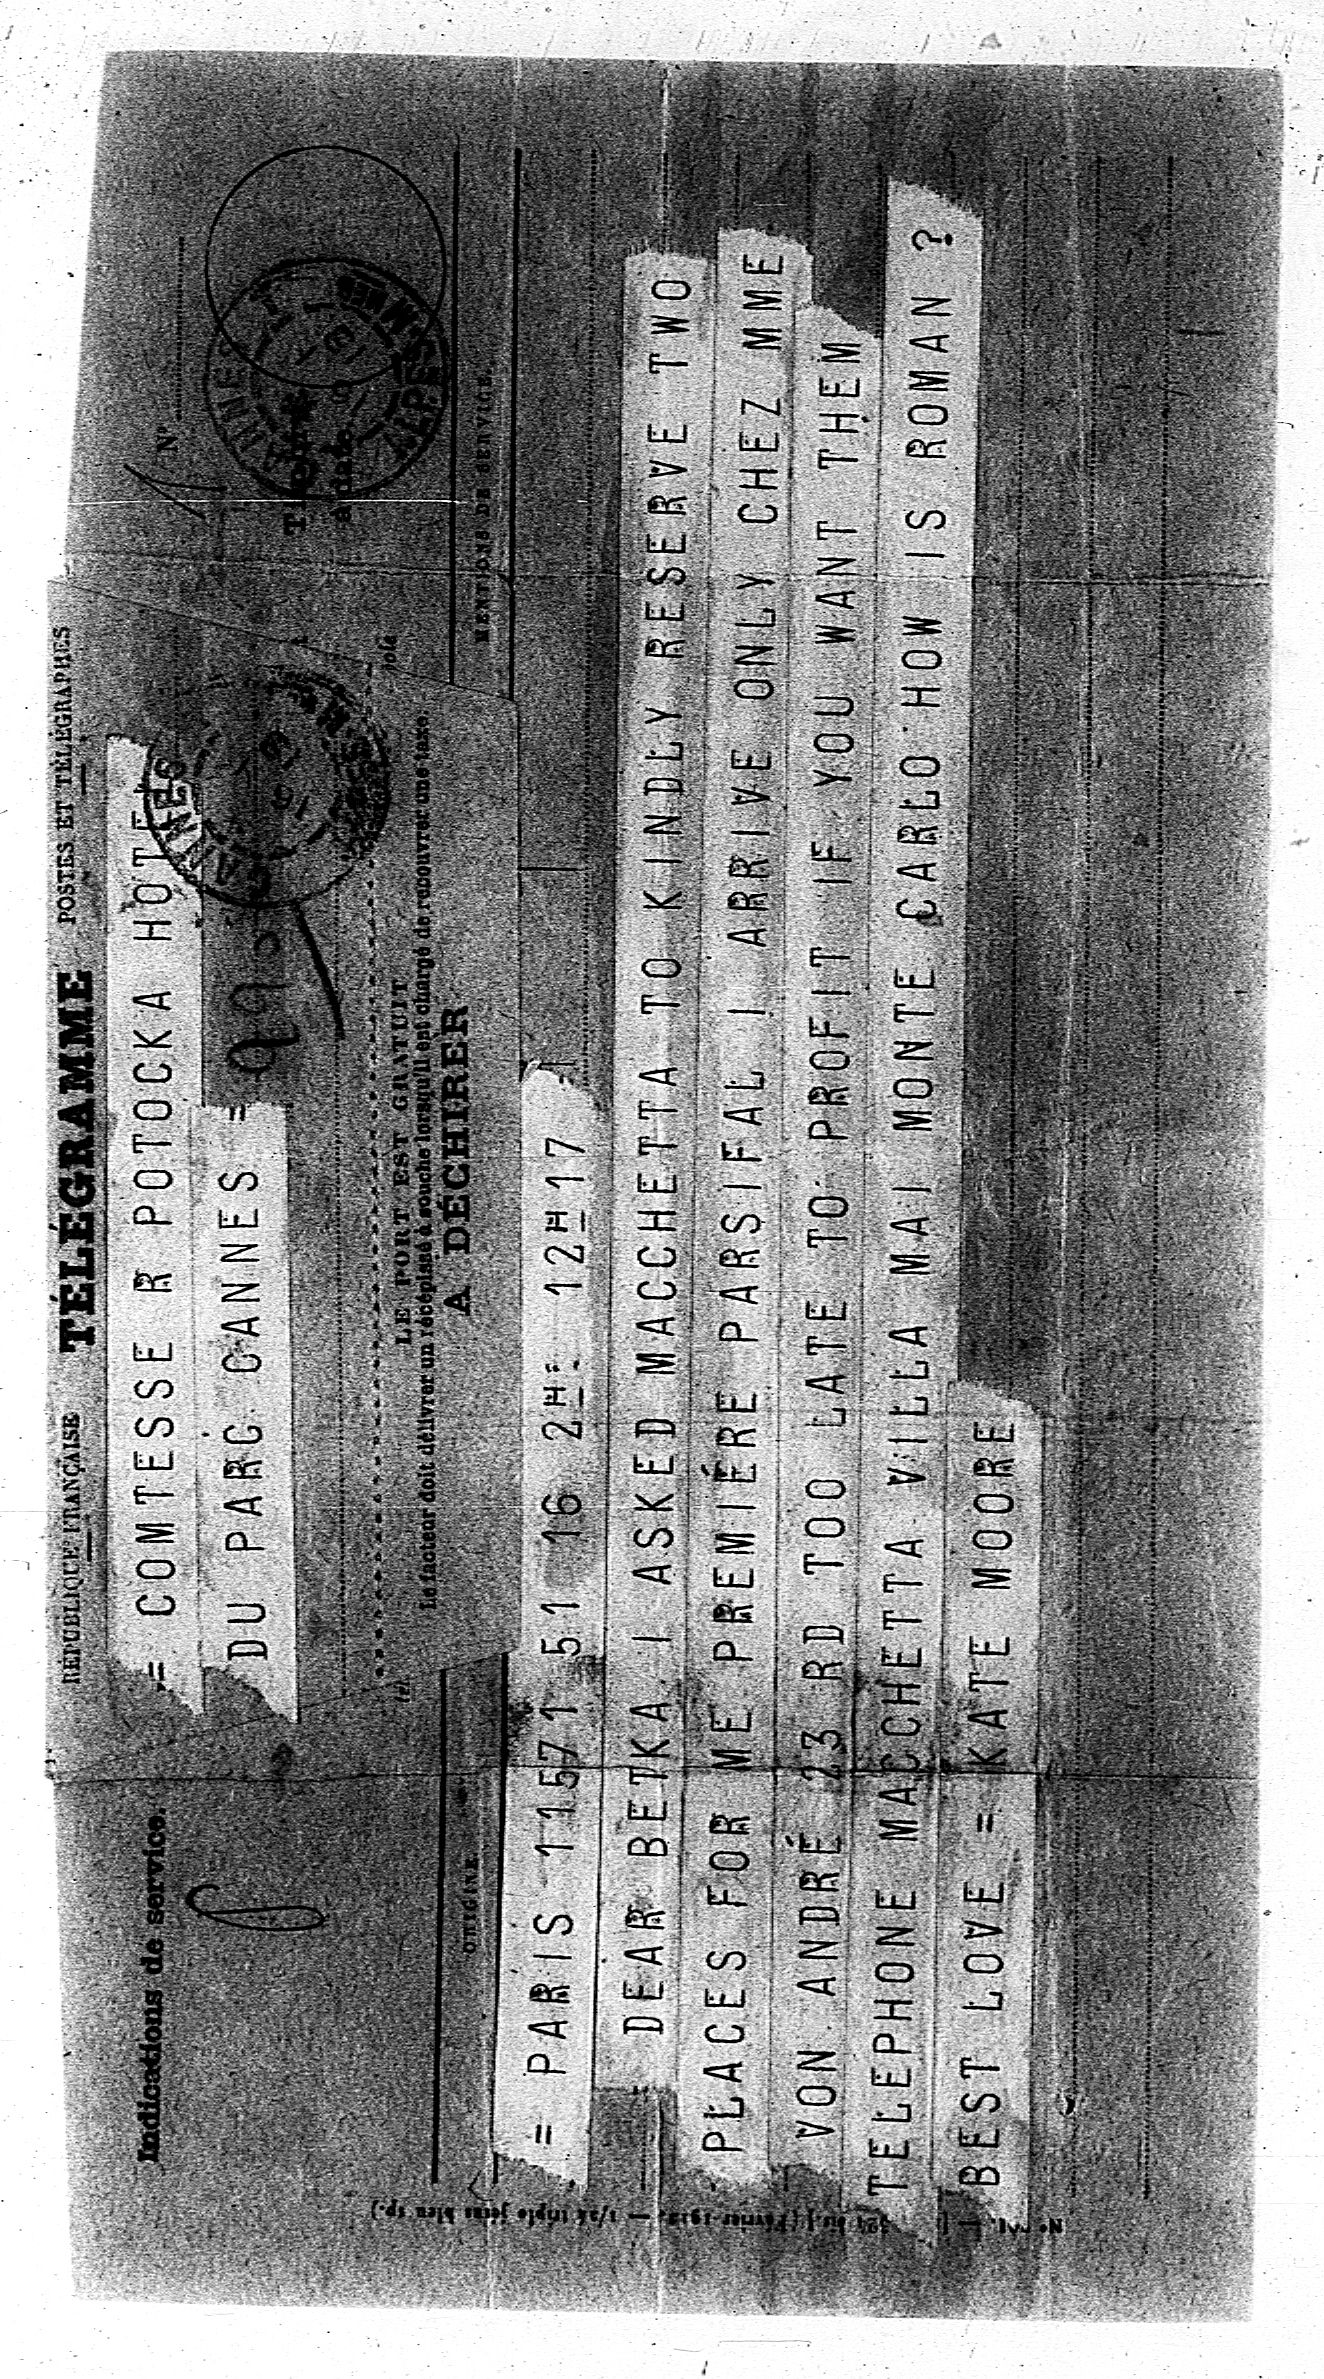 RÉPUBLIQUE FRANÇAISE TÉLÉGRAMME POSTES ET TÉLÉGRAPHES
Indications de service.
Nº
= COMTESSE R POTOCKA HOTEL
DU PARC CANNES =
LE PORT EST GRATUIT
Le facteur doit délivrer un récépissé à souche lorsqu'il est chargé de recouvrer une taxe.
A DÉCHIRER
ORIGINE
MENTIONS DE SERVICE.
= PARIS 11571 51 16 2H= 12H17
DEAR BETKA I ASKED MACCHETTA TO KINDLY RESERVE TWO
PLACES FOR ME PREMIÉRE PARSIFAL I ARRIVE ONLY CHEZ MME
VON ANDRÉ 23 RD TOO LATE TO PROFIT IF YOU WANT THEM
TELEPHONE MACCHETTA VILLA MAI MONTE CARLO HOW IS ROMAN ?
BEST LOVE = KATE MOORE